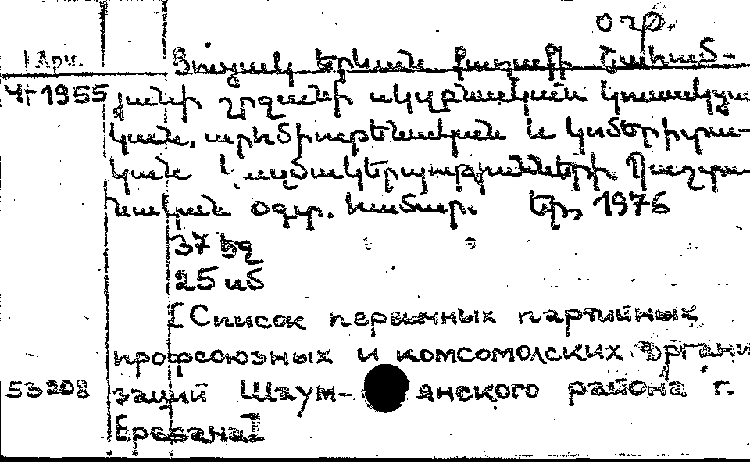 օգր.
1 Հрт.
Ցուցակ Երևան քաղաքի Շահում-
Վт 1955 յանի շրջանի սկզբնական կուսակցա
կան, արհմիութենական և կոմերիտա-
կան կազմակերպությունների. Պաշտո-
նական օգտ. համար. Եր., 1976
37 եզ
25 սմ
[Список первичных партийных
профсоюзных и комсомолских органи
53208 заций Шаум- янского района г.
Еревана]